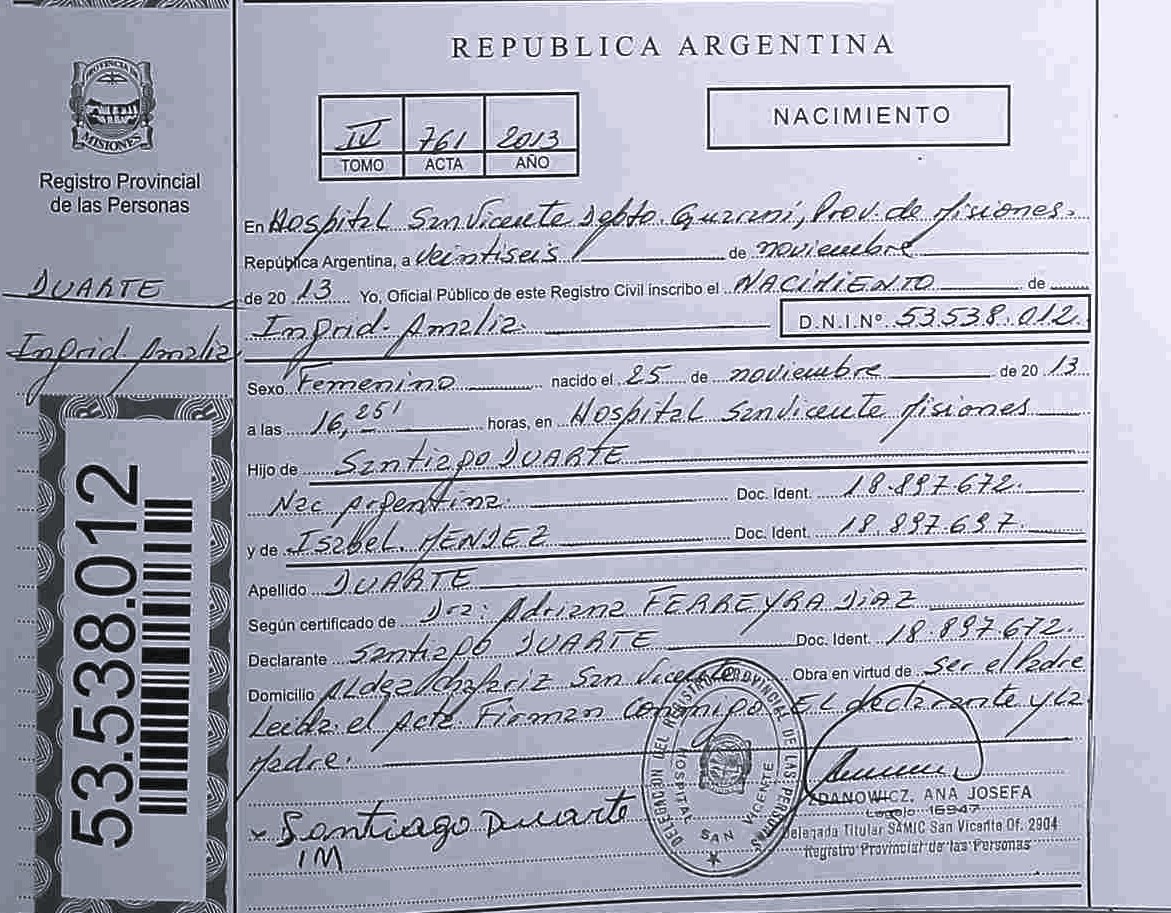 REPUBLICA ARGENTINA
PROVINCIA DE
MISIONES
Registro Provincial
de las Personas
DUARTE
Ingrid Amalia
53.538.012
IV 761 2013
TOMO ACTA AÑO
NACIMIENTO
En Hospital San Vicente Depto. Guaraní, Prov. de Misiones.
República Argentina, a veintiseis de noviembre
de 2013 Yo, Oficial Público de este Registro Civil inscribo el NACIMIENTO de
Ingrid Amalia. D.N.I.Nº 53.538.012.
Sexo Femenino nacido el 25 de noviembre de 2013
a las 16,25' horas, en Hospital San Vicente Misiones
Hijo de Santiago DUARTE
Nac Argentina. Doc. Ident. 18.897.672.
y de Isabel. MENDEZ Doc. Ident. 18.897.697.
Apellido DUARTE
Según certificado de Dra: Adriana FERREYRA DIAZ
Declarante Santiago DUARTE Doc. Ident. 18.897.672.
Domicilio Aldea Chafariz San Vicente Obra en virtud de ser el Padre
Leída el Acta Firman conmigo El declarante y la
Madre.
x Santiago Duarte
IM
DELEGACION DEL REGISTRO PROVINCIAL DE LAS PERSONAS
HOSPITAL SAN VICENTE
ANA JOSEFA
Legajo 16947
Delegada Titular SAMIC San Vicente Of. 2904
Registro Provincial de las Personas